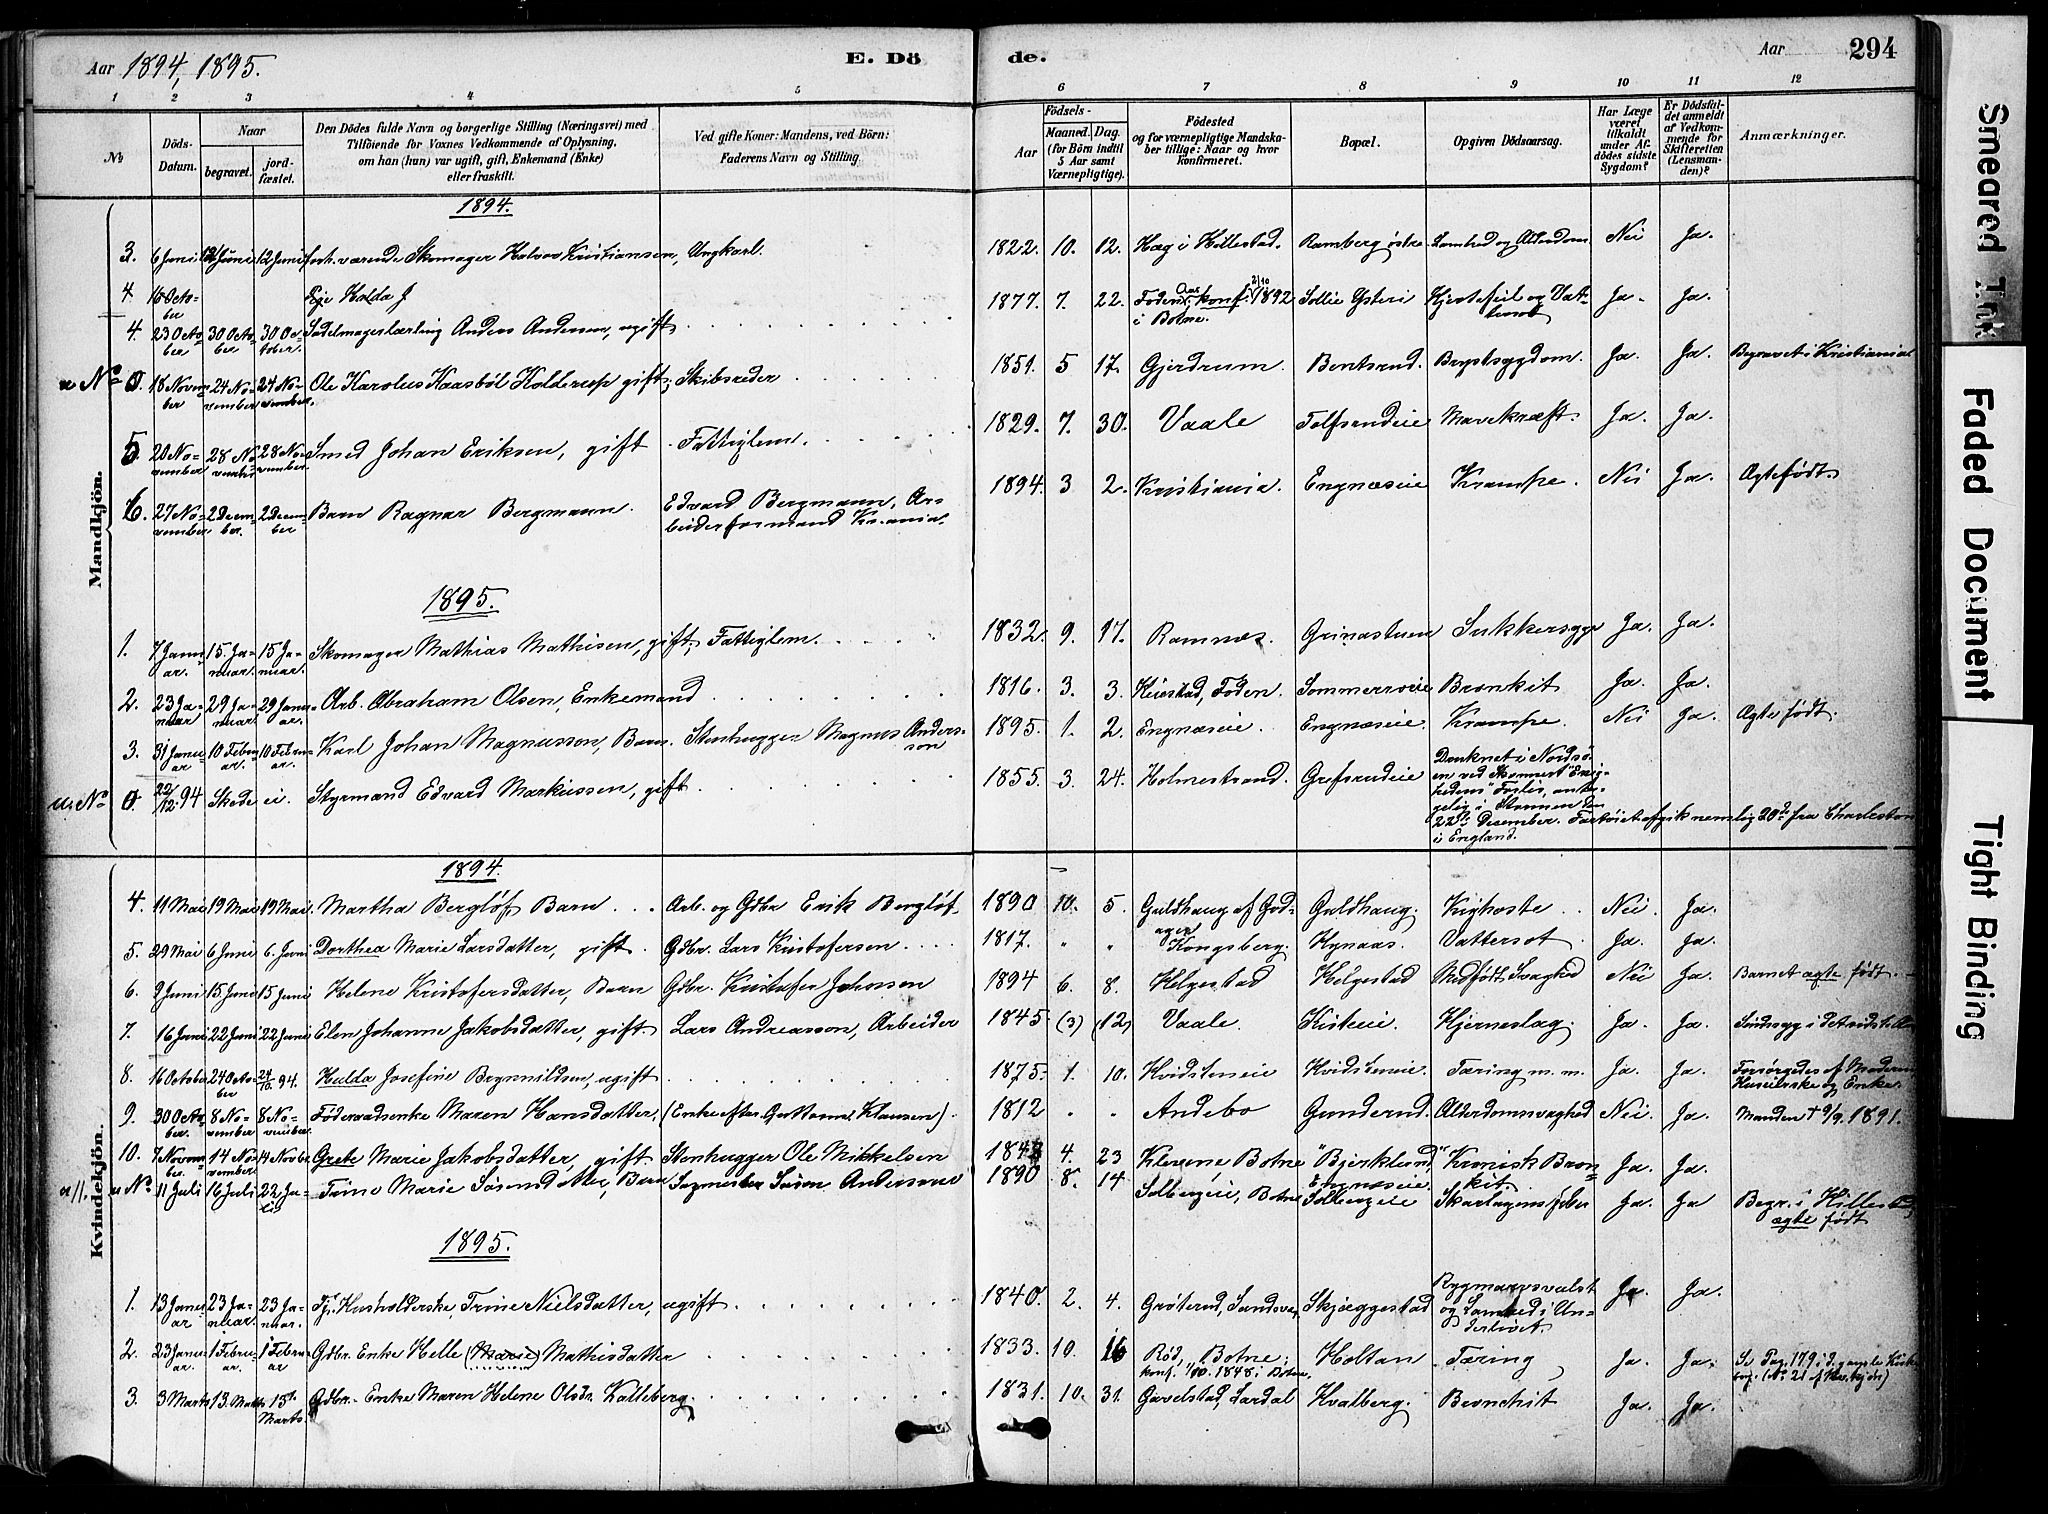 Aar 1894, 1895.
E. Dö
de.
Aar
294
1 2 3 4 5 6 7 8 9 10 11 12
No
Döds-Datum.
Naar
begravet.
jordfæstet.
Den Dödes fulde Navn og borgerlige Stilling (Næringsvei) med
Tilföiende for Voxnes Vedkommende af Oplysning,
om han (hun) var ugift, gift, Enkemand (Enke)
eller fraskilt.
Ved gifte Koner: Mandens, ved Börn:
Faderens Navn og Stilling
Födsels-
Aar
Maaned. Dag.
(for Börn indtil
5 Aar samt
Værnepligtige).
Födested
og for værnepligtige Mandskaber
tillige: Naar og hvor
konfirmeret.
Bopæl.
Opgiven Dödsaarsag.
Har Læge
været
tilkaldt
under Afdödes
sidste
Sygdom?
Er Dödsfaldet
anmeldt
af Vedkommende
for
Skifteretten
(Lensmanden)?
Anmærkninger.
Mandkjön.
1894.
3. 6 Juni 12 Juni 12 Juni forh.værende Skomager Halvor Kristiansen, Ungkarl. 1822. 10. 12. Hæg i Hillestad. Ramberg østre Svaghed og Alderdom Nei Ja.
4 16 October Pige Hulda J.
4. 23 October 30 October 30 October Sadelmagerlærling Anders Andersen, ugift 1877. 7. 22. Foden, konf. 2/10 1892 i Botne. Sollie Ysteri Hjertefeil og Vattersot Ja. Ja.
u No 0. 18 November 24 November 24 November. Ole Karolus Kaasböl Kolderup gift, Skibsreder 1851. 5 17. Gjerdrum. Bentsrud. Brystsygdom. Ja. Ja. Begravet i Kristiania
5. 20 November 28 November 28 November. Smed Johan Eriksen, gift. Fattiglem. 1829. 7. 30. Vaale Tolfsrudeie Mavekræft. Ja. Ja.
6. 27 November 2 December. 2 December Barn Ragnar Bergmann. Edvard Bergmann, Arbeiderformand Kr.ania. 1894. 3 2. Kristiania. Engnæseie Krampe. Nei Ja. Ægtefødt.
1895.
1. 7 Januar. 15. Januar. 15 Januar. Skomager Mathias Mathisen, gift, Fattiglem. 1832. 9. 17. Ramnæs. Grinastuen Sukkersyge Ja. Ja.
2. 23 Januar 29 Januar. 29 Januar. Arb. Abraham Olsen, Enkemand 1816. 3. 3. Keiestad, Foden. Sommerroeie Bronkit Ja. Ja.
3. 31 Januar 10 Februar. 10 Februar. Karl Johan Magnusson, Barn. Stenhugger Magnus Andersson 1895. 1. 2. Engnæseie. Engnæseie. Krampe. Nei Ja. Ægte født.
u. No 0. 22/12. 94 Skede ei. Styrmand Edvard Markussen, gift. 1855. 3. 24. Holmestrand. Grefsrudeie
Druknet i Nordsöen ved Skonnert "Enigheden"s Forlis, antagelig i Stormen den
22de Desember. Fartöiet afgik nemlig 20de fra Charleston
i England.
Kvindekjön.
1894.
4. 11 Mai 19 Mai 19 Mai. Martha Berglöf Barn. Arb. og Gdbr Erik Berglöf. 1890 10. 5. Guldhaug af Godager Guldhaug. Kighoste Nei. Ja.
5. 29 Mai 6 Juni 6. Juni Dorthea Marie Larsdatter, gift. Gdbr. Lars Kristofersen 1817. " " Kongsberg. Hynaas. Vattersot. Ja. Ja.
6. 9 Juni 15. Juni 15 Juni Helene Kristofersdatter, Barn Gdbr. Kristofer Johnsen 1894 6. 8. Helgestad Helgestad Medfödt Svaghed Nei Ja. Barnet ægte født.
7. 16 Juni 22 Juni 22 Juni Elen Johanne Jakobsdatter, gift Lars Andreasson, Arbeider 1845 (3) (12) Vaale. Kisteeie. Hjerneslag. Ja. Ja.
8. 16 October 24 October 24/10 94. Hulda Josefine Brynnildsen, ugift 1875. 1. 10. Hvidsteneie Hvidsteneie. Tæring m. m. Ja. Ja. Forsørgedes af Moderen Huseierske og Enke.
9. 30 October. 8 November 8 November. Føderaadsenke Maren Hansdatter. (Enke efter Guttorm Klausen). 1812 " " Andebo Gunderud. Alderdomsvaghed Nei. Ja. Manden † 9/9. 1891.
10. 7 November. 14 November 14 Novbr. Grete Marie Jakobsdatter, gift. Stenhugger Ole Mikkelsen 1843 4. 23 Klevene Botne "Bjerklund" Engnæseie Kronisk Bronkit Ja. Ja.
u 11. u No 11 Juli 16 Juli 22 Juli Trine Marie Sørensdatter, Barn Sagmester Søren Andersens 1890 8. 14 Solbergeie, Botne Solbergeie Skarlagensfeber Ja. Ja Begr. i Hillestad, ægte født
1895.
1. 13 Januar 23 Januar. 23 Januar. Fj. Husholderske, Trine Nielsdatter, ugift. 1840. 2. 4. Grøterud, Sandsvær Skjæggestad Rygmarvsvulst og Lamhed i Underlivet. Ja. Ja.
2. 23 Januar. 1 Februar. 1 Februar Gdbr. Enke Helle (Marie) Mathisdatter 1833. 10. 16 Rød, Botne, konf. 1/10. 1848 i Botne. Holtan Tæring Ja. Ja. Se Pag. 179 i d. gamle Kirkebog. (No 21 af Kv.kjön)
3. 3 Marts 13. Marts 15de Marts. Gdbr. Enke Maren Helene Olsdr. Kalleberg. 1831. 10. 31. Gavelstad, Lardal Hvalberg. Bronchit Ja. Ja.
Smeared Ink
Faded Document
Tight Binding